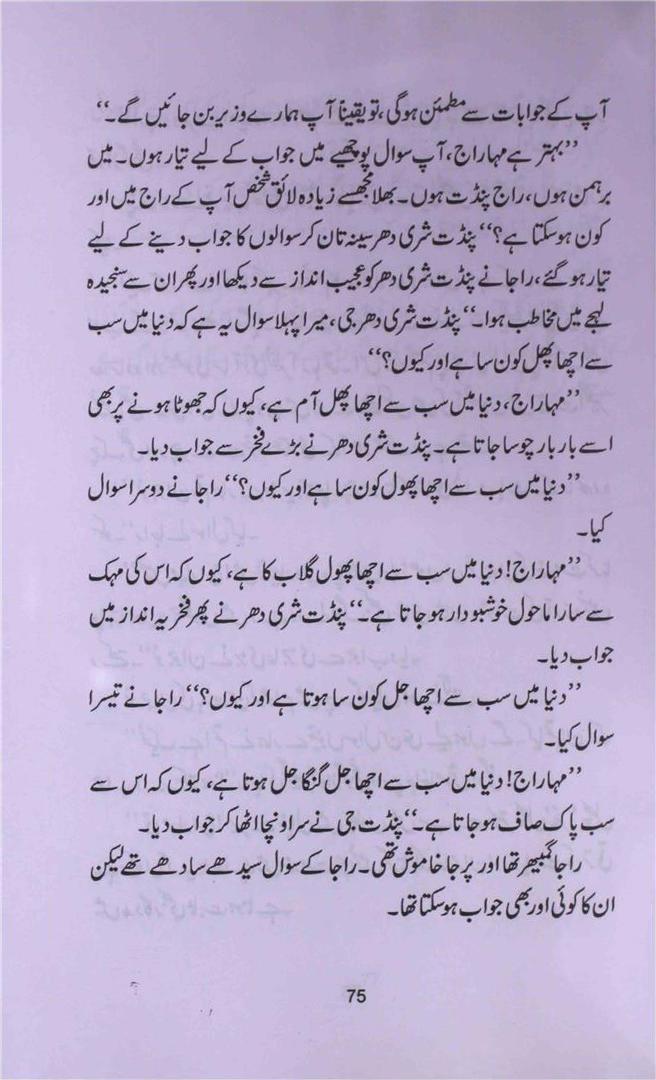 آپ کے جوابات سے مطمئن ہوگی، تو یقیناً آپ ہمارے وزیر بن جائیں گے۔‘‘
’’بہتر ہے مہاراج، آپ سوال پوچھیے میں جواب کے لیے تیار ہوں۔ میں
برہمن ہوں، راج پنڈت ہوں۔ بھلا مجھ سے زیادہ لائق شخص آپ کے راج میں اور
کون ہوسکتا ہے؟‘‘ پنڈت شری دھر سینہ تان کر سوالوں کا جواب دینے کے لیے
تیار ہوگئے، راجا نے پنڈت شری دھر کو عجیب انداز سے دیکھا اور پھر ان سے سنجیدہ
لہجے میں مخاطب ہوا۔‘‘ پنڈت شری دھر جی، میرا پہلا سوال یہ ہے کہ دنیا میں سب
سے اچھا پھل کون سا ہے اور کیوں؟‘‘
’’مہاراج، دنیا میں سب سے اچھا پھل آم ہے، کیوں کہ جھوٹا ہونے پر بھی
اسے بار بار چوسا جاتا ہے۔ پنڈت شری دھر نے بڑے فخر سے جواب دیا۔
’’دنیا میں سب سے اچھا پھول کون سا ہے اور کیوں؟‘‘ راجا نے دوسرا سوال
کیا۔
’’مہاراج! دنیا میں سب سے اچھا پھول گلاب کا ہے، کیوں کہ اس کی مہک
سے سارا ماحول خوشبودار ہو جاتا ہے۔‘‘ پنڈت شری دھر نے پھر فخریہ انداز میں
جواب دیا۔
’’دنیا میں سب سے اچھا جل کون سا ہوتا ہے اور کیوں؟‘‘ راجا نے تیسرا
سوال کیا۔
’’مہاراج! دنیا میں سب سے اچھا جل گنگا جل ہوتا ہے، کیوں کہ اس سے
سب پاک صاف ہو جاتا ہے۔‘‘ پنڈت جی نے سر اونچا اٹھا کر جواب دیا۔
راجا گمبھیر تھا اور پرجا خاموش تھی۔ راجا کے سوال سیدھے سادھے تھے لیکن
ان کا کوئی اور بھی جواب ہوسکتا تھا۔
75